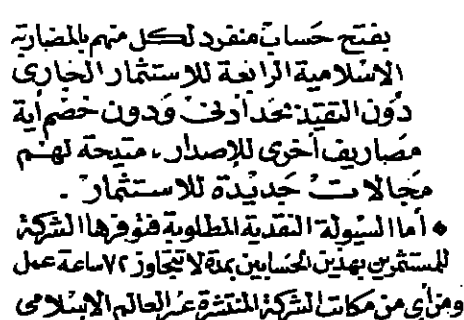 بفتح حساب منفرد لكل منهم بالمضاربة
الاسلامية الرابعة للاستثمار الجارى
دون التقيد بحد أدنى ودون خصم أية
مصاريف أخرى للإصدار ، متيحة لهم
مجالات جديدة للاستثمار .
• أما السيولة النقدية المطلوبة فتوفرها الشركة
للمستثمرين بهذين الحسابين بمدة لا تتجاوز ٧٢ ساعة عمل
ومن أى من مكاتب الشركة المنتشرة عبر العالم الاسلامى